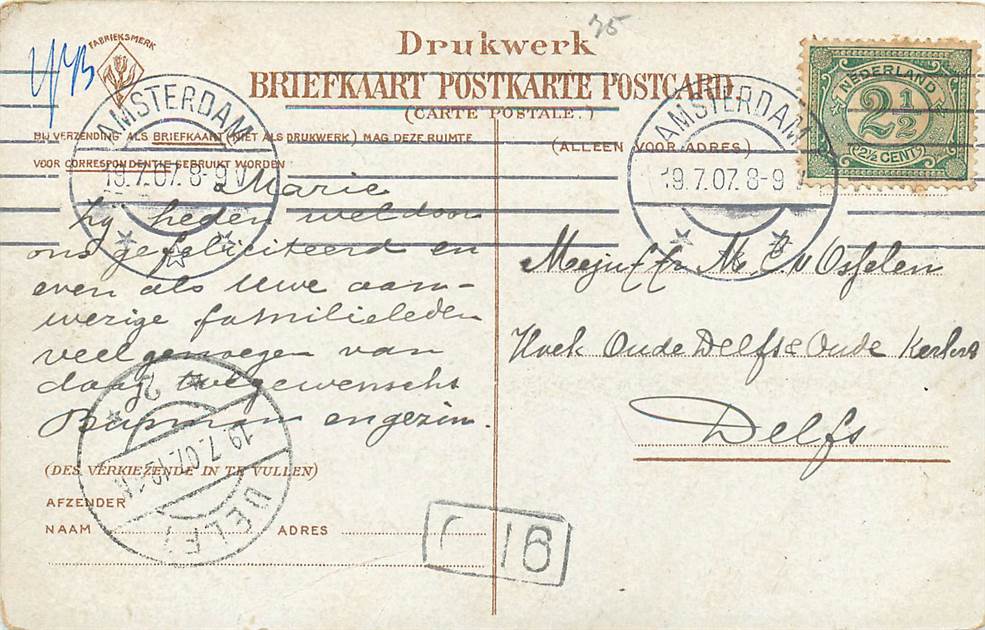 75
FABRIEKSMERK
Drukwerk
BRIEFKAART POSTKARTE POSTCARD
(CARTE POSTALE.)
BIJ VERZENDING ALS BRIEFKAART (NIET ALS DRUKWERK) MAG DEZE RUIMTE
VOOR CORRESPONDENTIE GEBRUIKT WORDEN
(ALLEEN VOOR ADRES)
NEDERLAND
2½
(2½ CENT)
AMSTERDAM
19.7.07. 8-9 V
AMSTERDAM
19.7.07. 8-9
Marie
heden wel door
ons gefeliciteerd en
even als Uwe aan-
wezige familieleden
veel genoegen van
daag toegewenscht
en gezin.
Mejuffr M. E. v Osselen
Hoek Oude Delft & Oude Kerkstr
Delft
(DES VERKIEZENDE IN TE VULLEN)
AFZENDER
NAAM ADRES
DELFT
19.7.07
16